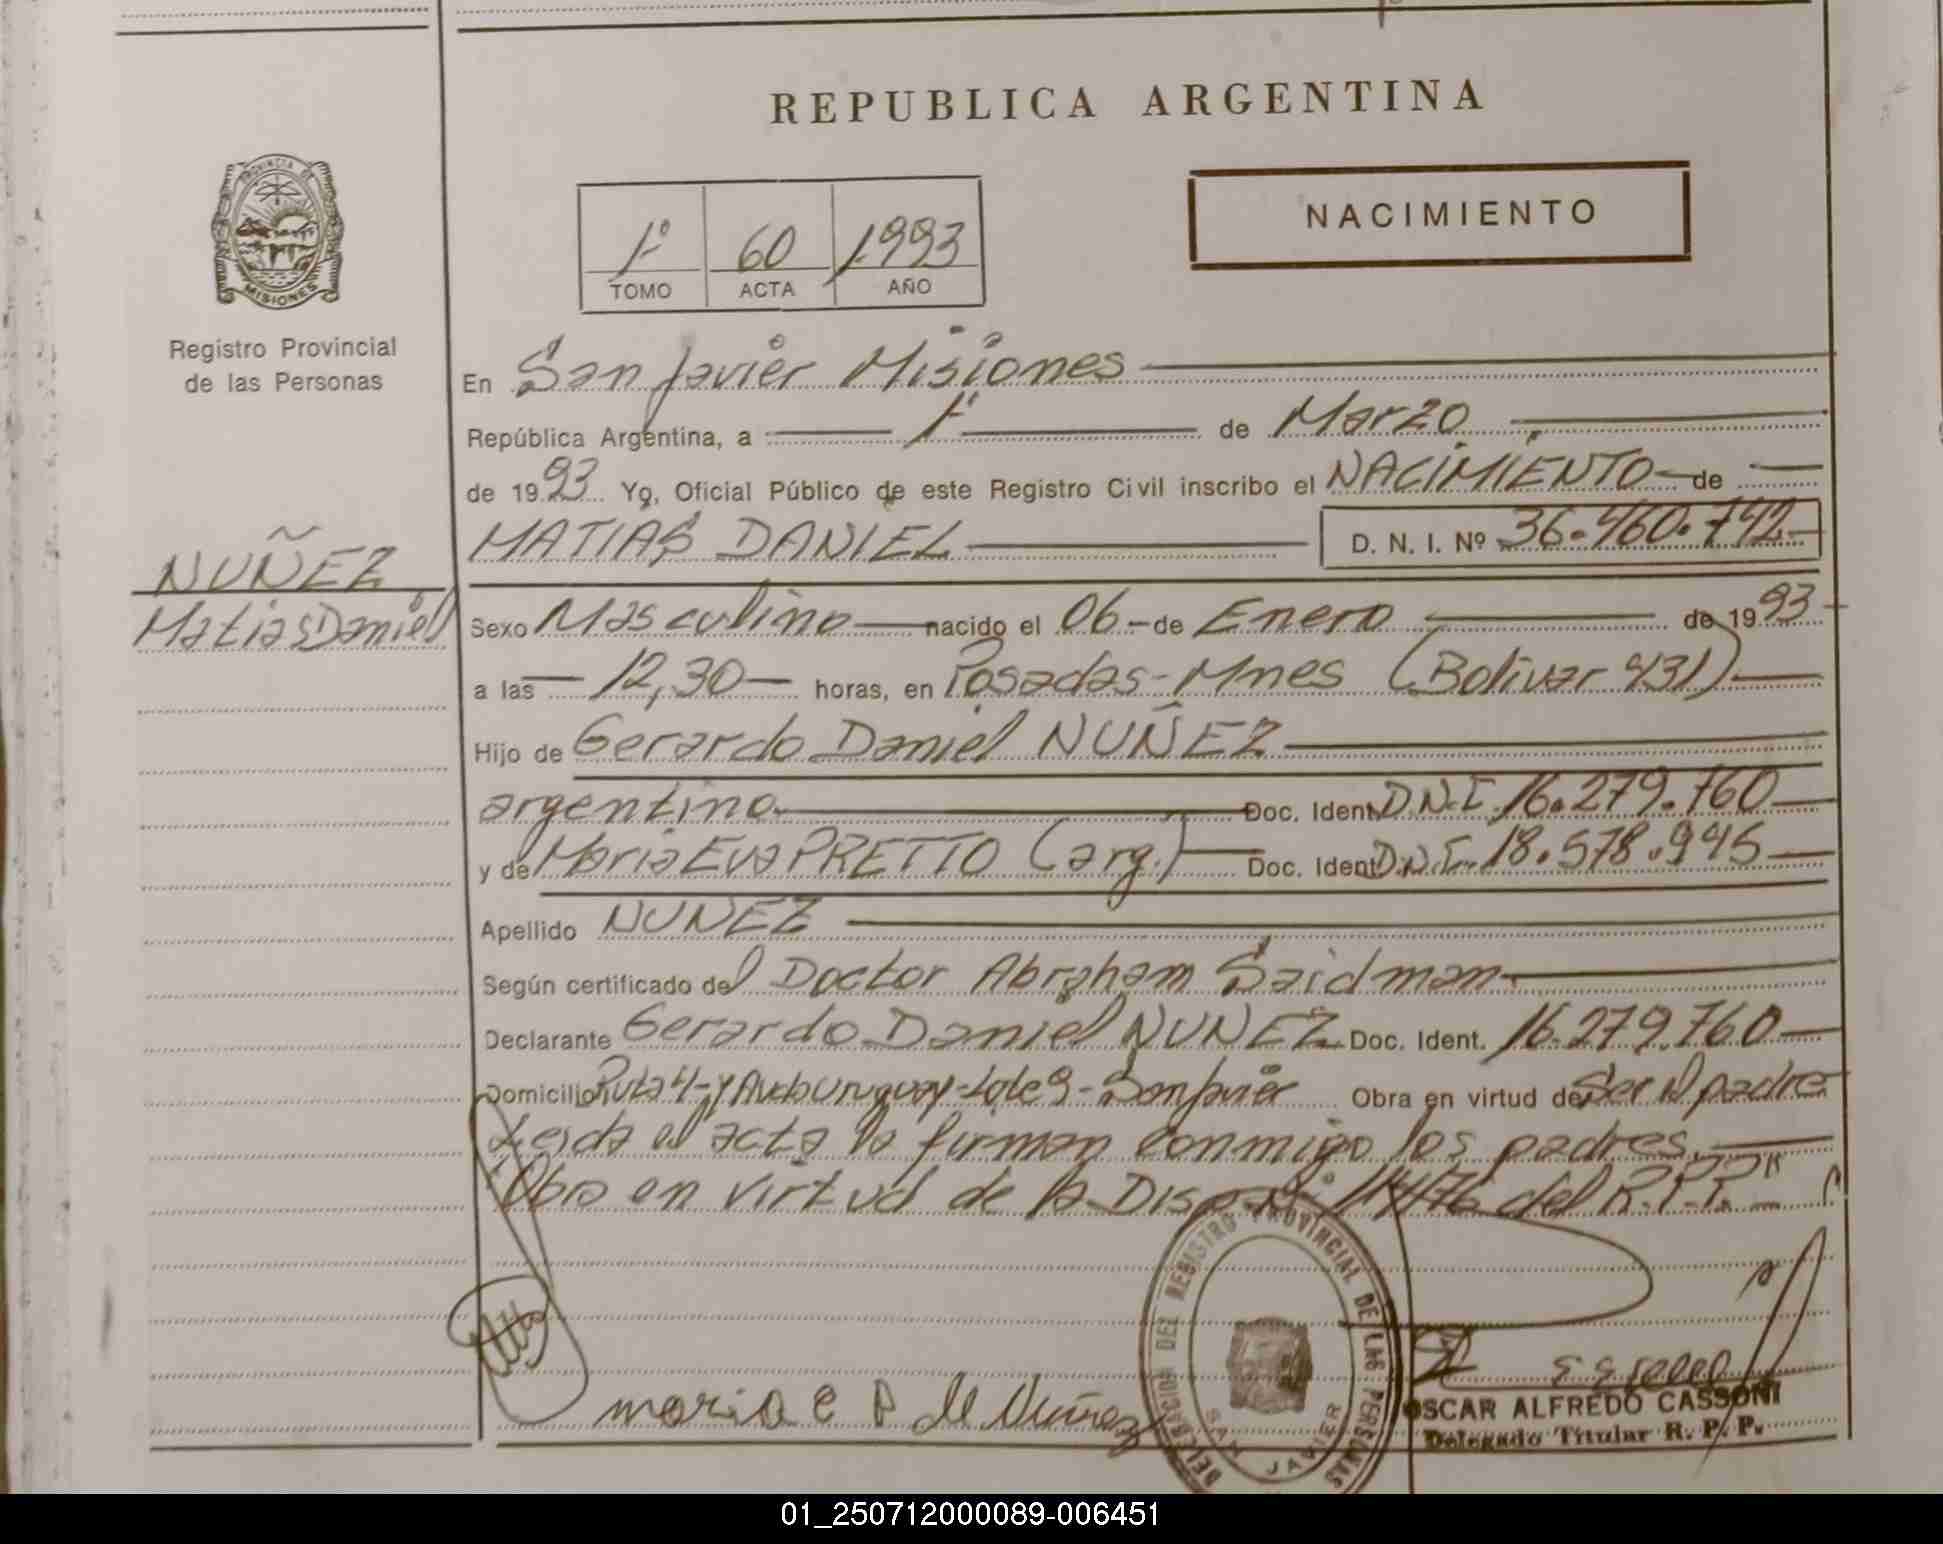 REPUBLICA ARGENTINA
NACIMIENTO
1º 60 1993
TOMO ACTA AÑO
PROVINCIA DE
MISIONES
Registro Provincial
de las Personas
En San Javier Misiones
República Argentina, a 1º de Marzo
de 1993 Yo, Oficial Público de este Registro Civil inscribo el NACIMIENTO de
MATIAS DANIEL D. N. I. Nº 36.460.742
NUÑEZ
Matias Daniel
Sexo Masculino nacido el 06 de Enero de 1993
a las 12,30 horas, en Posadas-Mnes (Bolivar 431)
Hijo de Gerardo Daniel NUÑEZ
argentino Doc. Ident. D.N.I. 16.279.760
y de Maria Eva PRETTO (arg.) Doc. Ident. D.N.I. 18.578.945
Apellido NUNEZ
Según certificado del Doctor Abraham Saidman
Declarante Gerardo Daniel NUNEZ Doc. Ident. 16.279.760
Domicilio Ruta 4-y Avda Uruguay-Lote 9-San Javier Obra en virtud de Ser el padre
Leida el acta la firman conmigo los padres.
"Obra en virtud de la Disp. 114/76 del R.P.P."
maria e P de Nuñez
DELEGACION DEL REGISTRO PROVINCIAL DE LAS PERSONAS
SAN JAVIER
OSCAR ALFREDO CASSONI
Delegado Titular R. P. P.
01_250712000089-006451